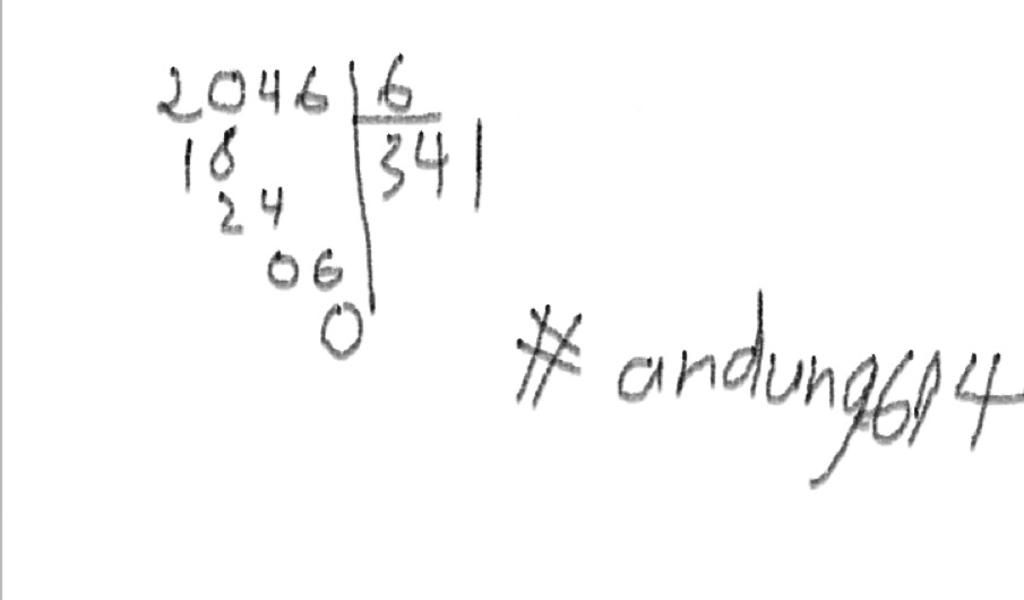 2046 6
18 341
24
06
0
# andung614